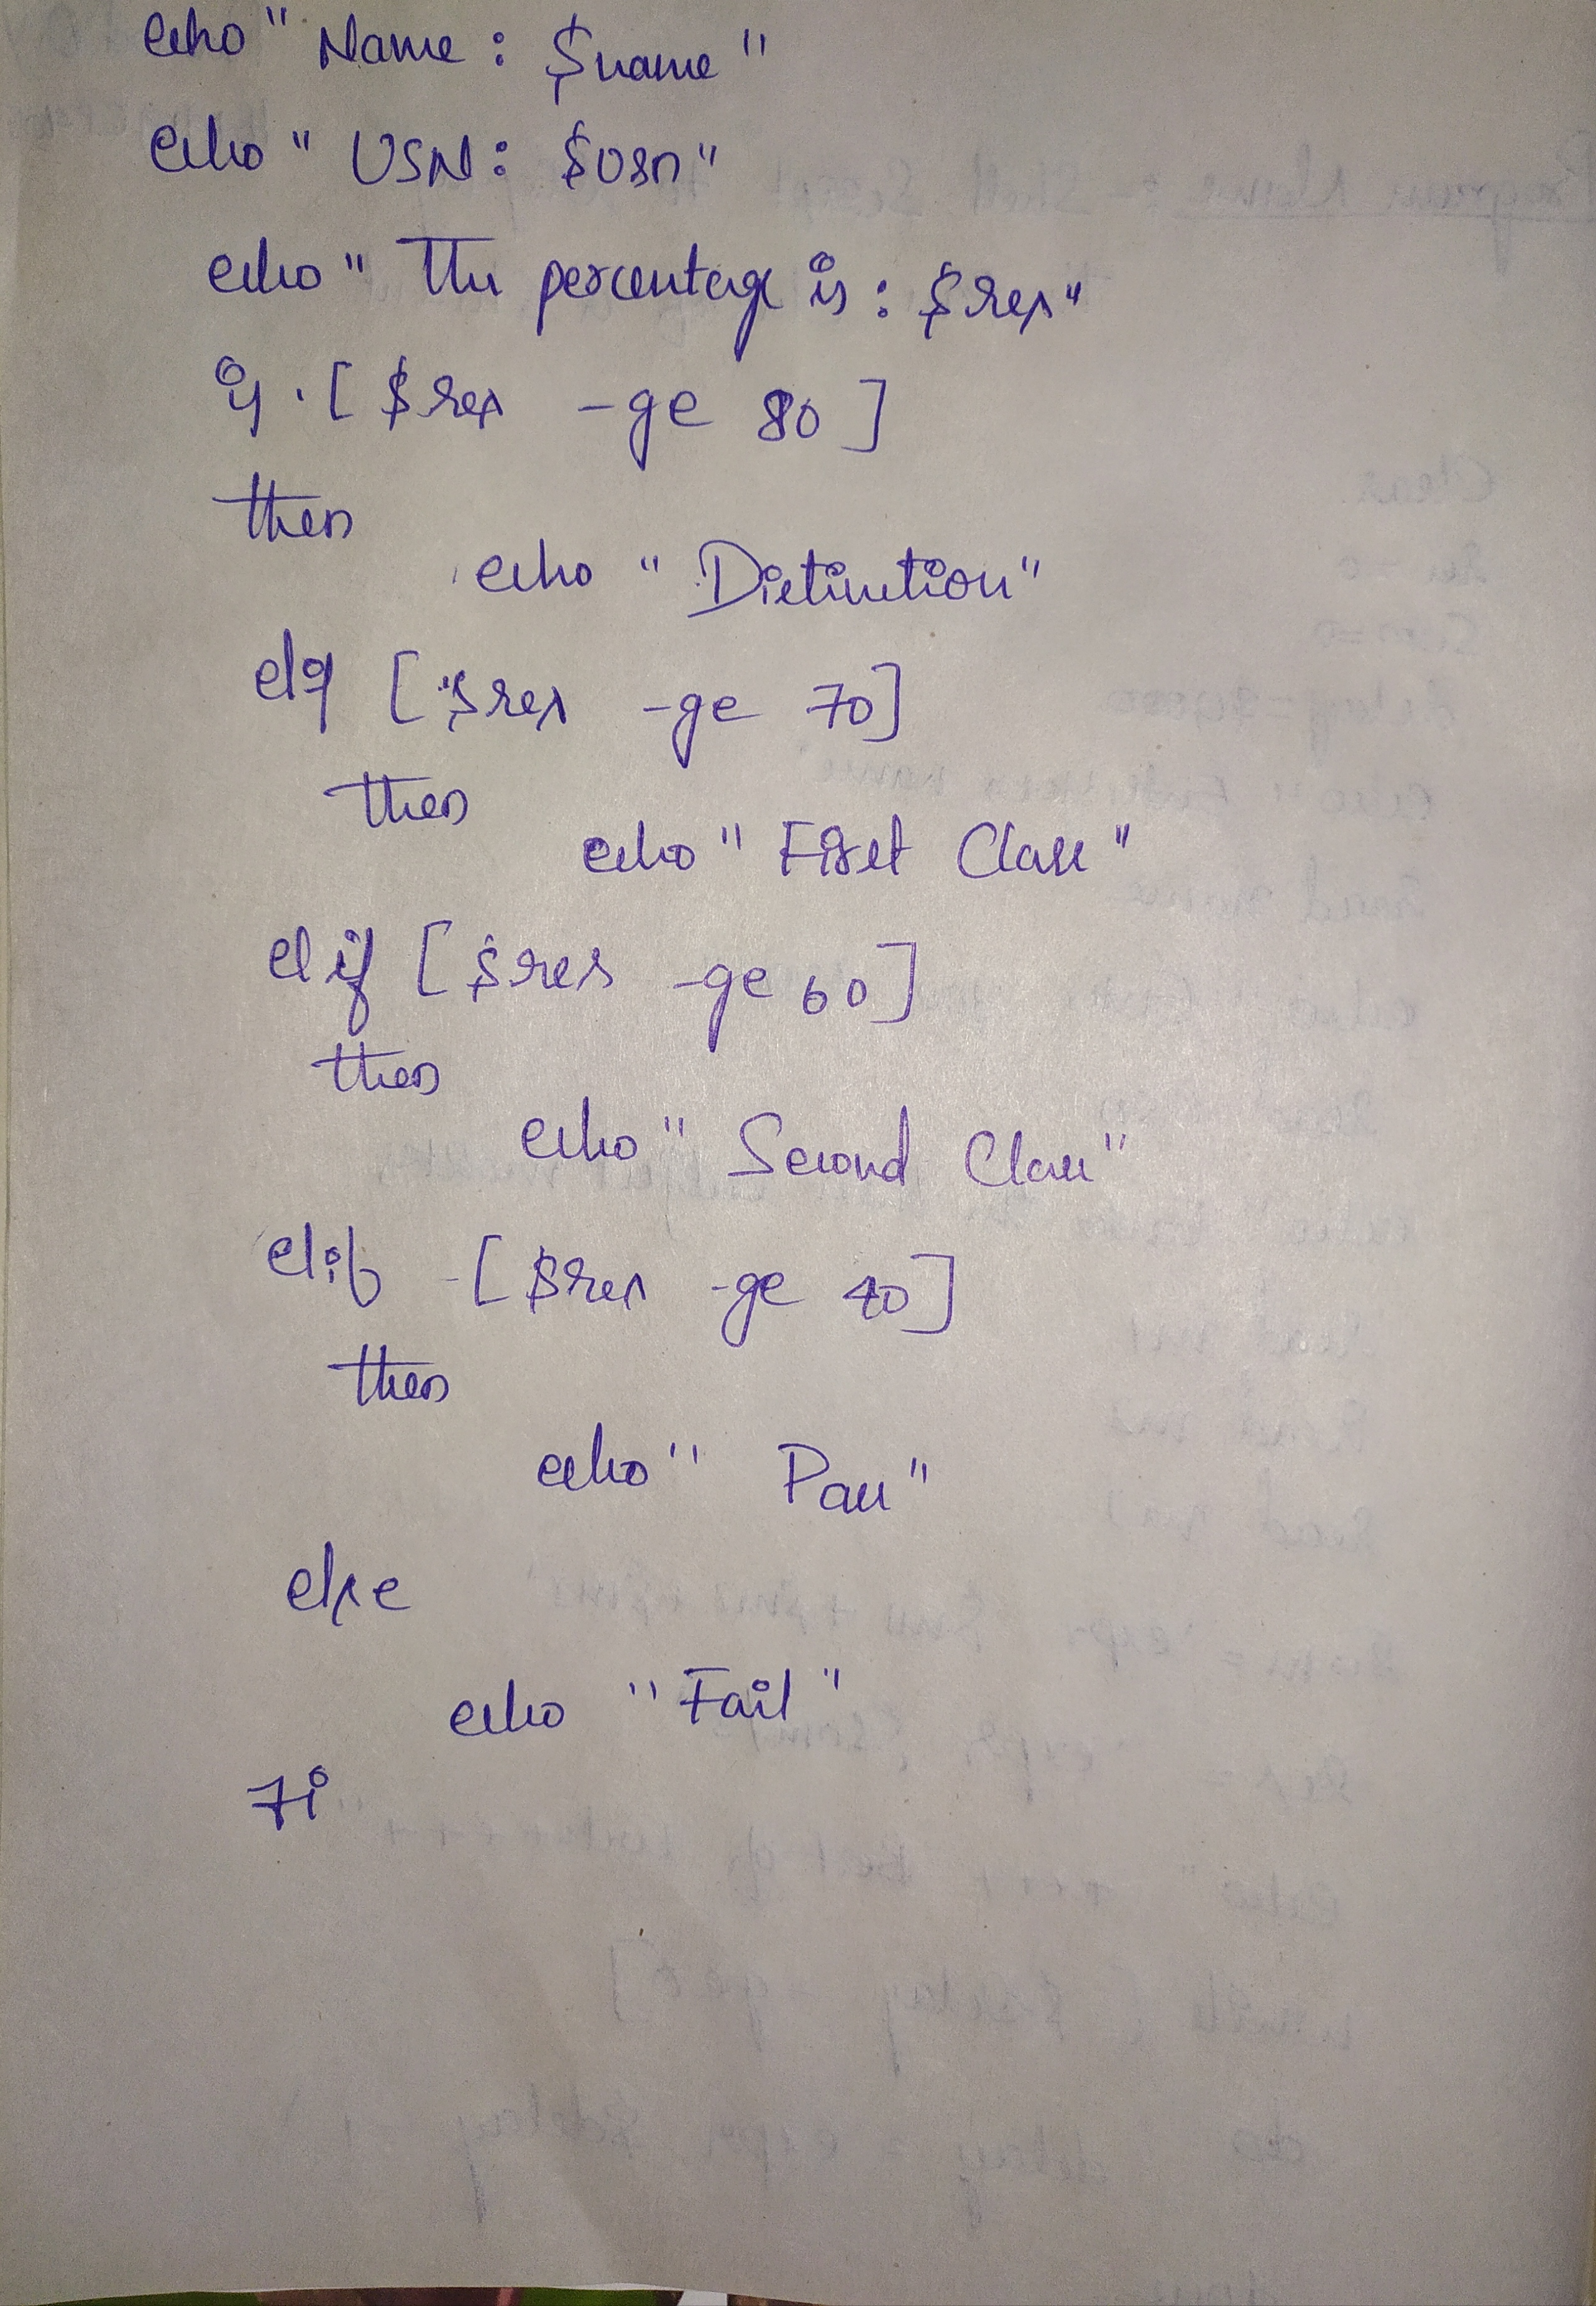 echo " Name : $name "
echo " USN : $usn "
echo " The percentage is : $res "
if [ $res -ge 80 ]
then
echo " Distinction "
elif [ $res -ge 70 ]
then
echo " First Class "
elif [ $res -ge 60 ]
then
echo " Second Class "
elif [ $res -ge 40 ]
then
echo " Pass "
else
echo " Fail "
fi